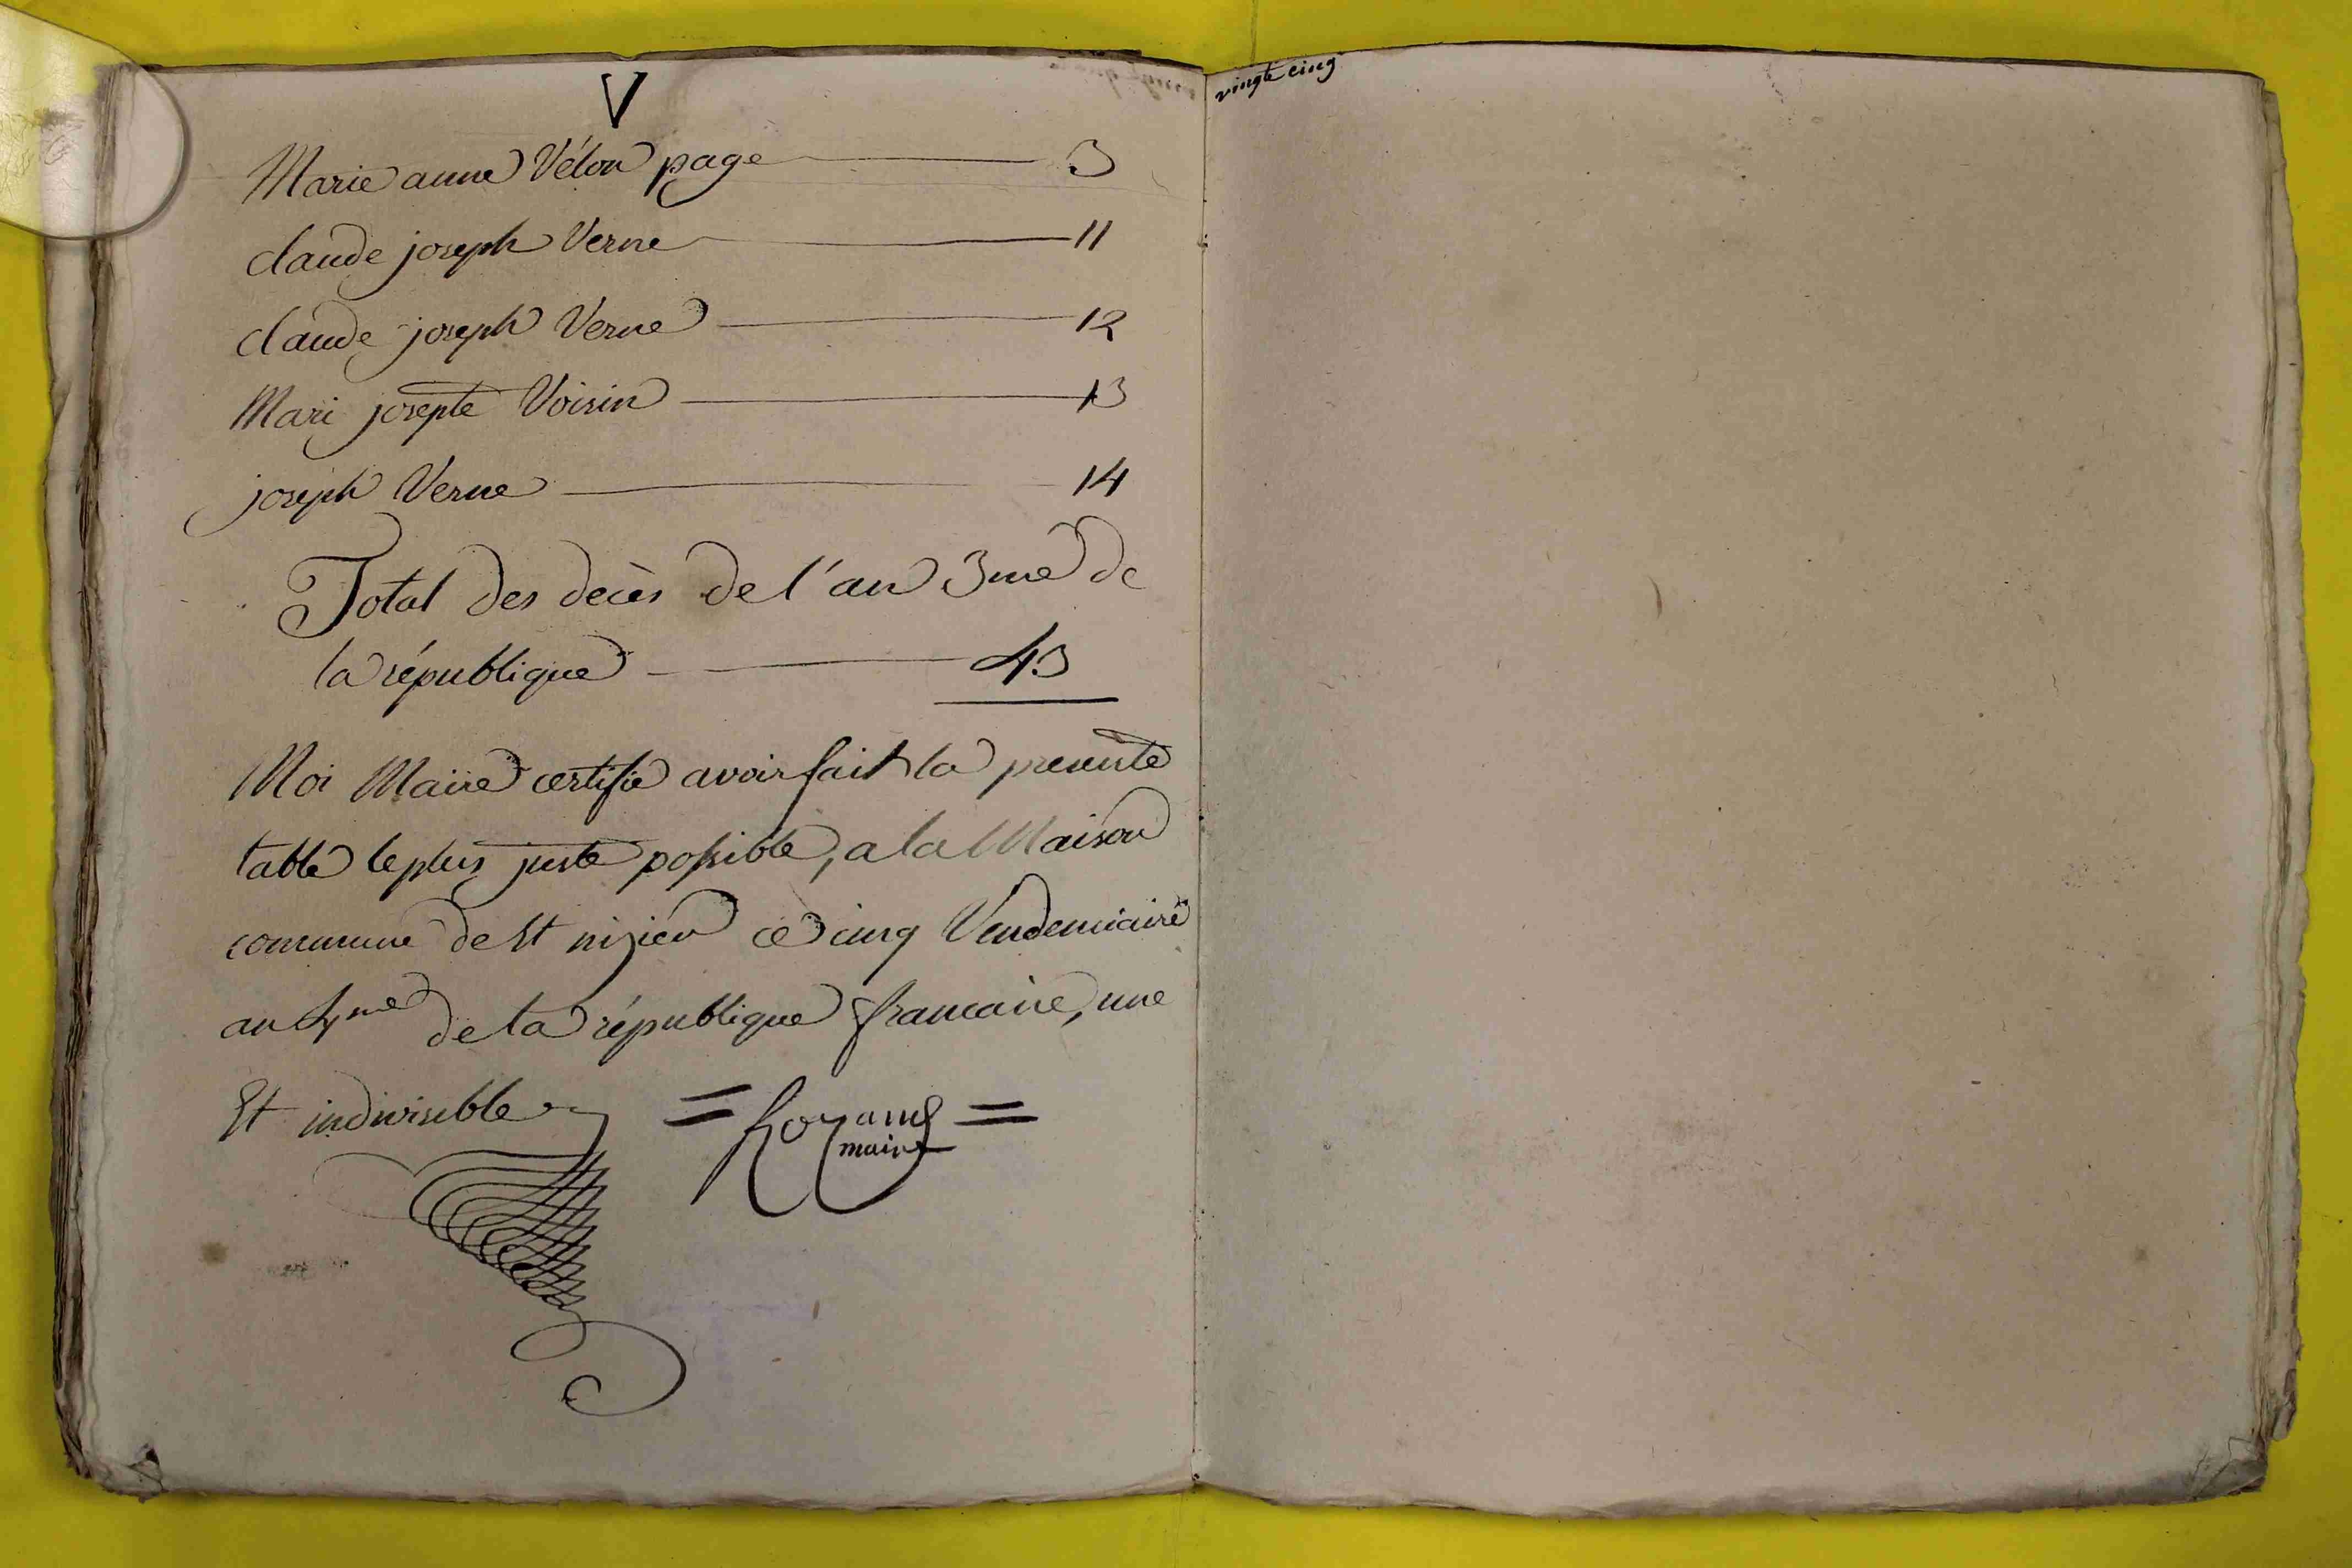 V
Marie anne Vélon page 3
claude joseph Verne 11
claude joseph Verne 12
Mari josepte Voisin 13
joseph Verne 14
Total des decès de l'an 3me de
la république 43
Moi Maire certifie avoir fait la presente
table le plus juste possible, a la Maison
commune de St nizier ce cinq Vendemiaire
an 4me de la république francaise, une
Et indivisible
maire
vingt cinq